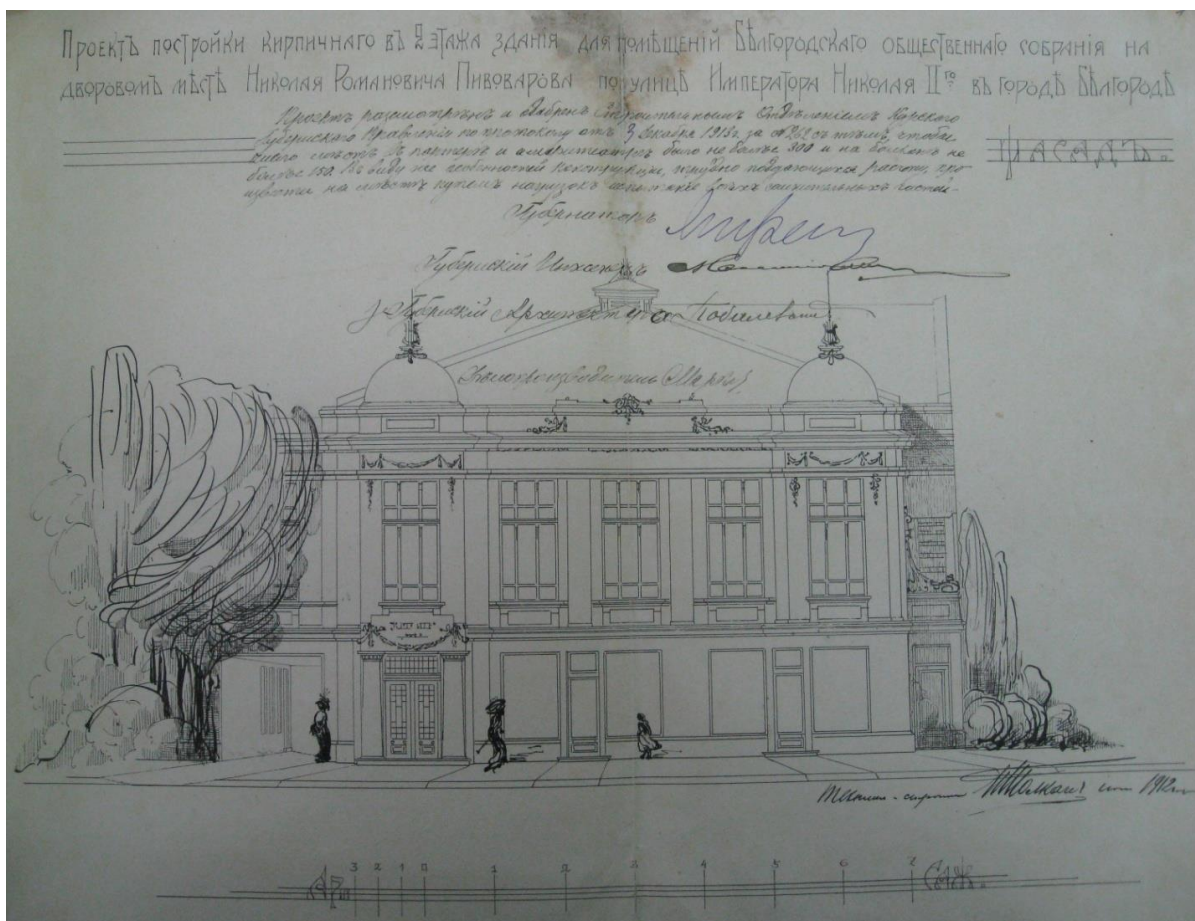 Проектъ постройки кирпичнаго въ 2 этажа зданія для помѣщеній Бѣлгородскаго общественнаго собранія на
дворовомъ мѣстѣ Николая Романовича Пивоварова по улицѣ Императора Николая II го въ городѣ Бѣлгородѣ
Проектъ разсмотрѣнъ и одобренъ Строительнымъ Отдѣленіемъ Курскаго
Губернскаго Правленія по протоколу отъ 3 Декабря 1913 г. за № 262 съ тѣмъ, чтобы
всего мѣстъ въ партерѣ и амфитеатрѣ было не болѣе 300 и на балконѣ не
болѣе 150. Въ виду же особенностей конструкціи, трудно поддающихся расчету, про
извести на мѣстѣ путемъ нагрузокъ испытаніе всѣхъ частей
Фасадъ.
Губернаторъ
Губернскій Инженеръ
Губернскій Архитекторъ
Дѣлопроизводитель
Техникъ-строитель 1912
Ар. 3 2 1 0 1 2 3 4 5 6 7 Саж.